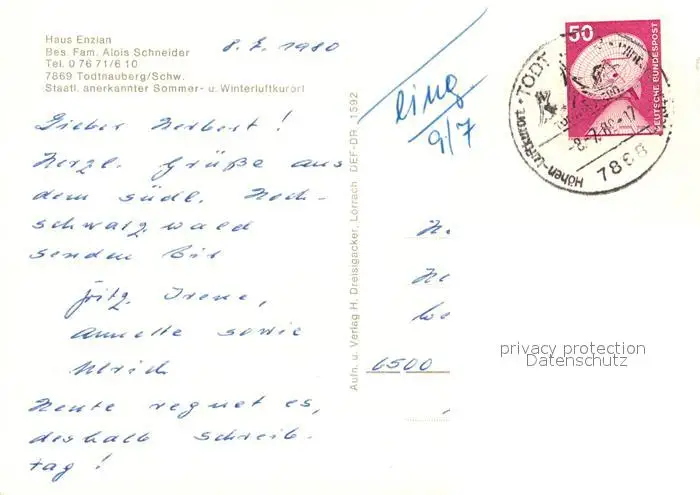 Haus Enzian
Bes. Fam. Alois Schneider
Tel. 0 76 71/6 10
7869 Todtnauberg/Schw.
Staatl. anerkannter Sommer- u. Winterluftkurort
8.7.1980
Lieber Herbert!
Herzl. Grüße aus
dem südl. Hoch-
schwarzwald
senden Dir
Fritz, Irene,
Annette sowie
Ulrich
Heute regnet es,
deshalb Schreib-
tag!
Aufn. u. Verlag H. Dreisigacker, Lörrach DEF-DR. 1592
eing
9/7
50
DEUTSCHE BUNDESPOST
TODT
-8.-7.80-17
7868
Höhen-Luftkurort
H.
He
We
6500
privacy protection
Datenschutz